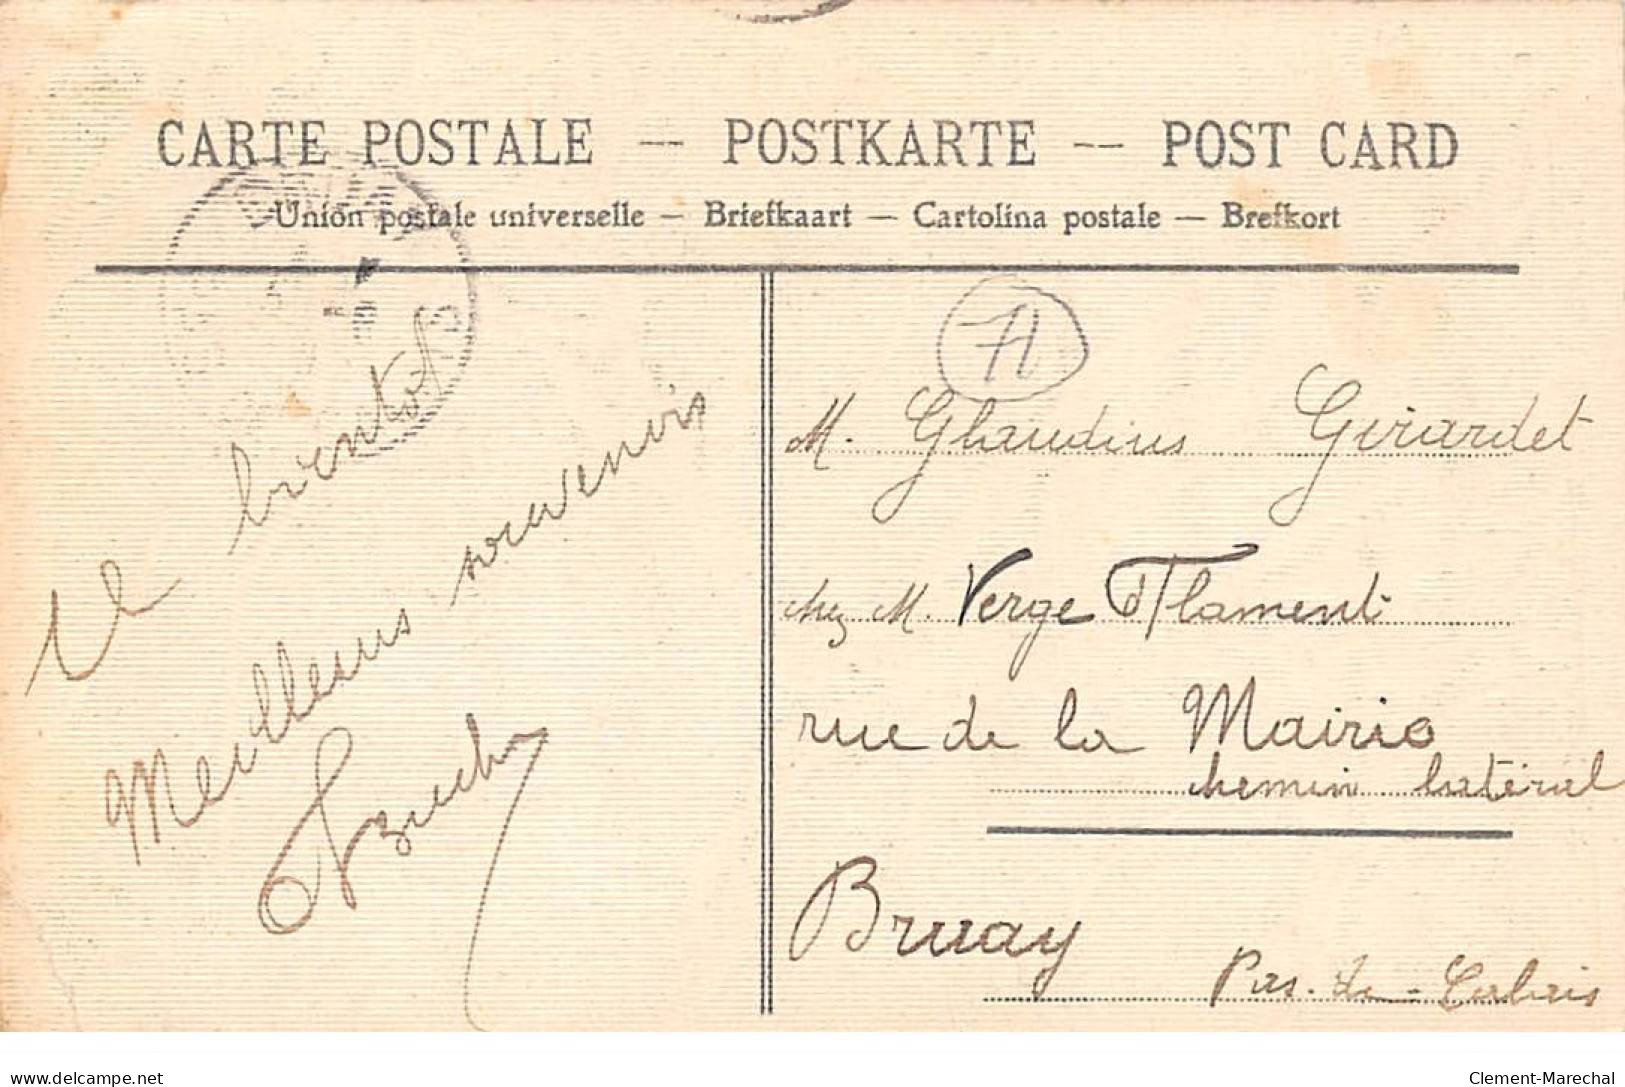 CARTE POSTALE — POSTKARTE — POST CARD
Union postale universelle — Briefkaart — Cartolina postale — Brefkort
71
A bientôt
Meilleurs souvenirs
M. Glaudius Girardet
chez M. Verge Flament
rue de la Mairie
chemin latéral
Bruay
Pas-de-Calais
www.delcampe.net
Clement-Marechal